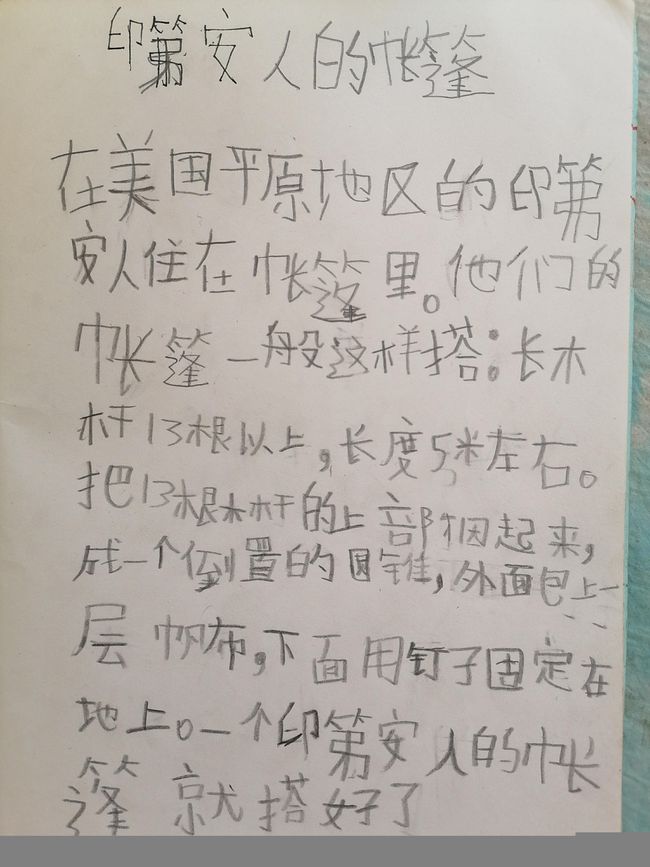 印第安人的帐篷
在美国平原地区的印第
安人住在帐篷里。他们的
帐篷一般这样搭：长木
杆13根以上，长度5米左右。
把13根木杆的上部捆起来，
成一个倒置的圆锥，外面包上一
层帆布，下面用钉子固定在
地上。一个印第安人的帐
篷就搭好了